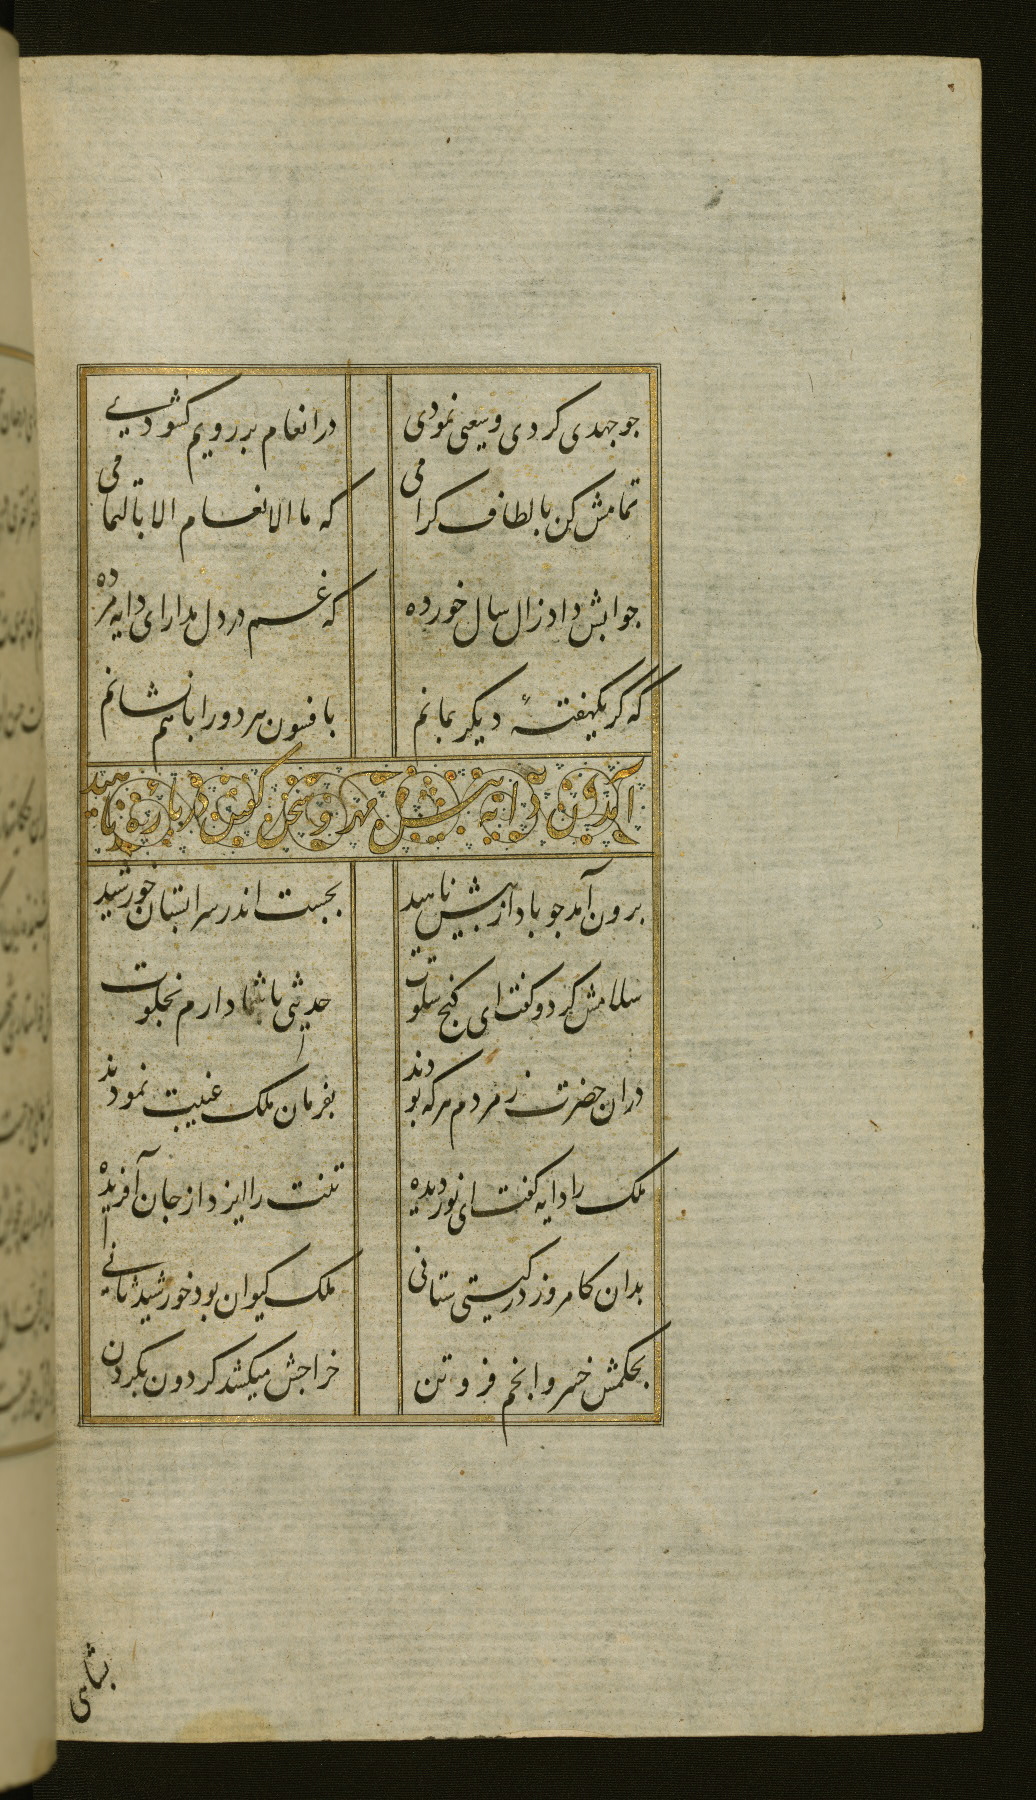 جو جهدی کردی و سعی نمودی در انعام بر رویم کشودی
تمامش کن بالطاف کرامی که ما الانعام الا بالتمامی
جوابش داد زال سال خورده که غم در دل مدار ای دایه مرده
که کر یکهفتهٔ دیکر بمانم بافسون هر دو را باهم نشانم
آمدن دایه پیش مهر و سخن کفتن در باره ناهید
برون آمد جو باد از پیش ناهید بجست اندر سرابستان خورشید
سلامش کرد و کفت ای کنج سلوت حدیثی با شما دارم بخلوت
دران حضرت ز مردم هر که بودند بفرمان ملک غیبت نمودند
ملک را دایه کفت ای نور دیده تنت را ایزد از جان آفریده
بدان کامروز در کیتی ستانی ملک کیوان بود خورشید ثانی
بحکمش خسرو انجم فروتن خراجش میکشد کردون بکردن
بشاهی